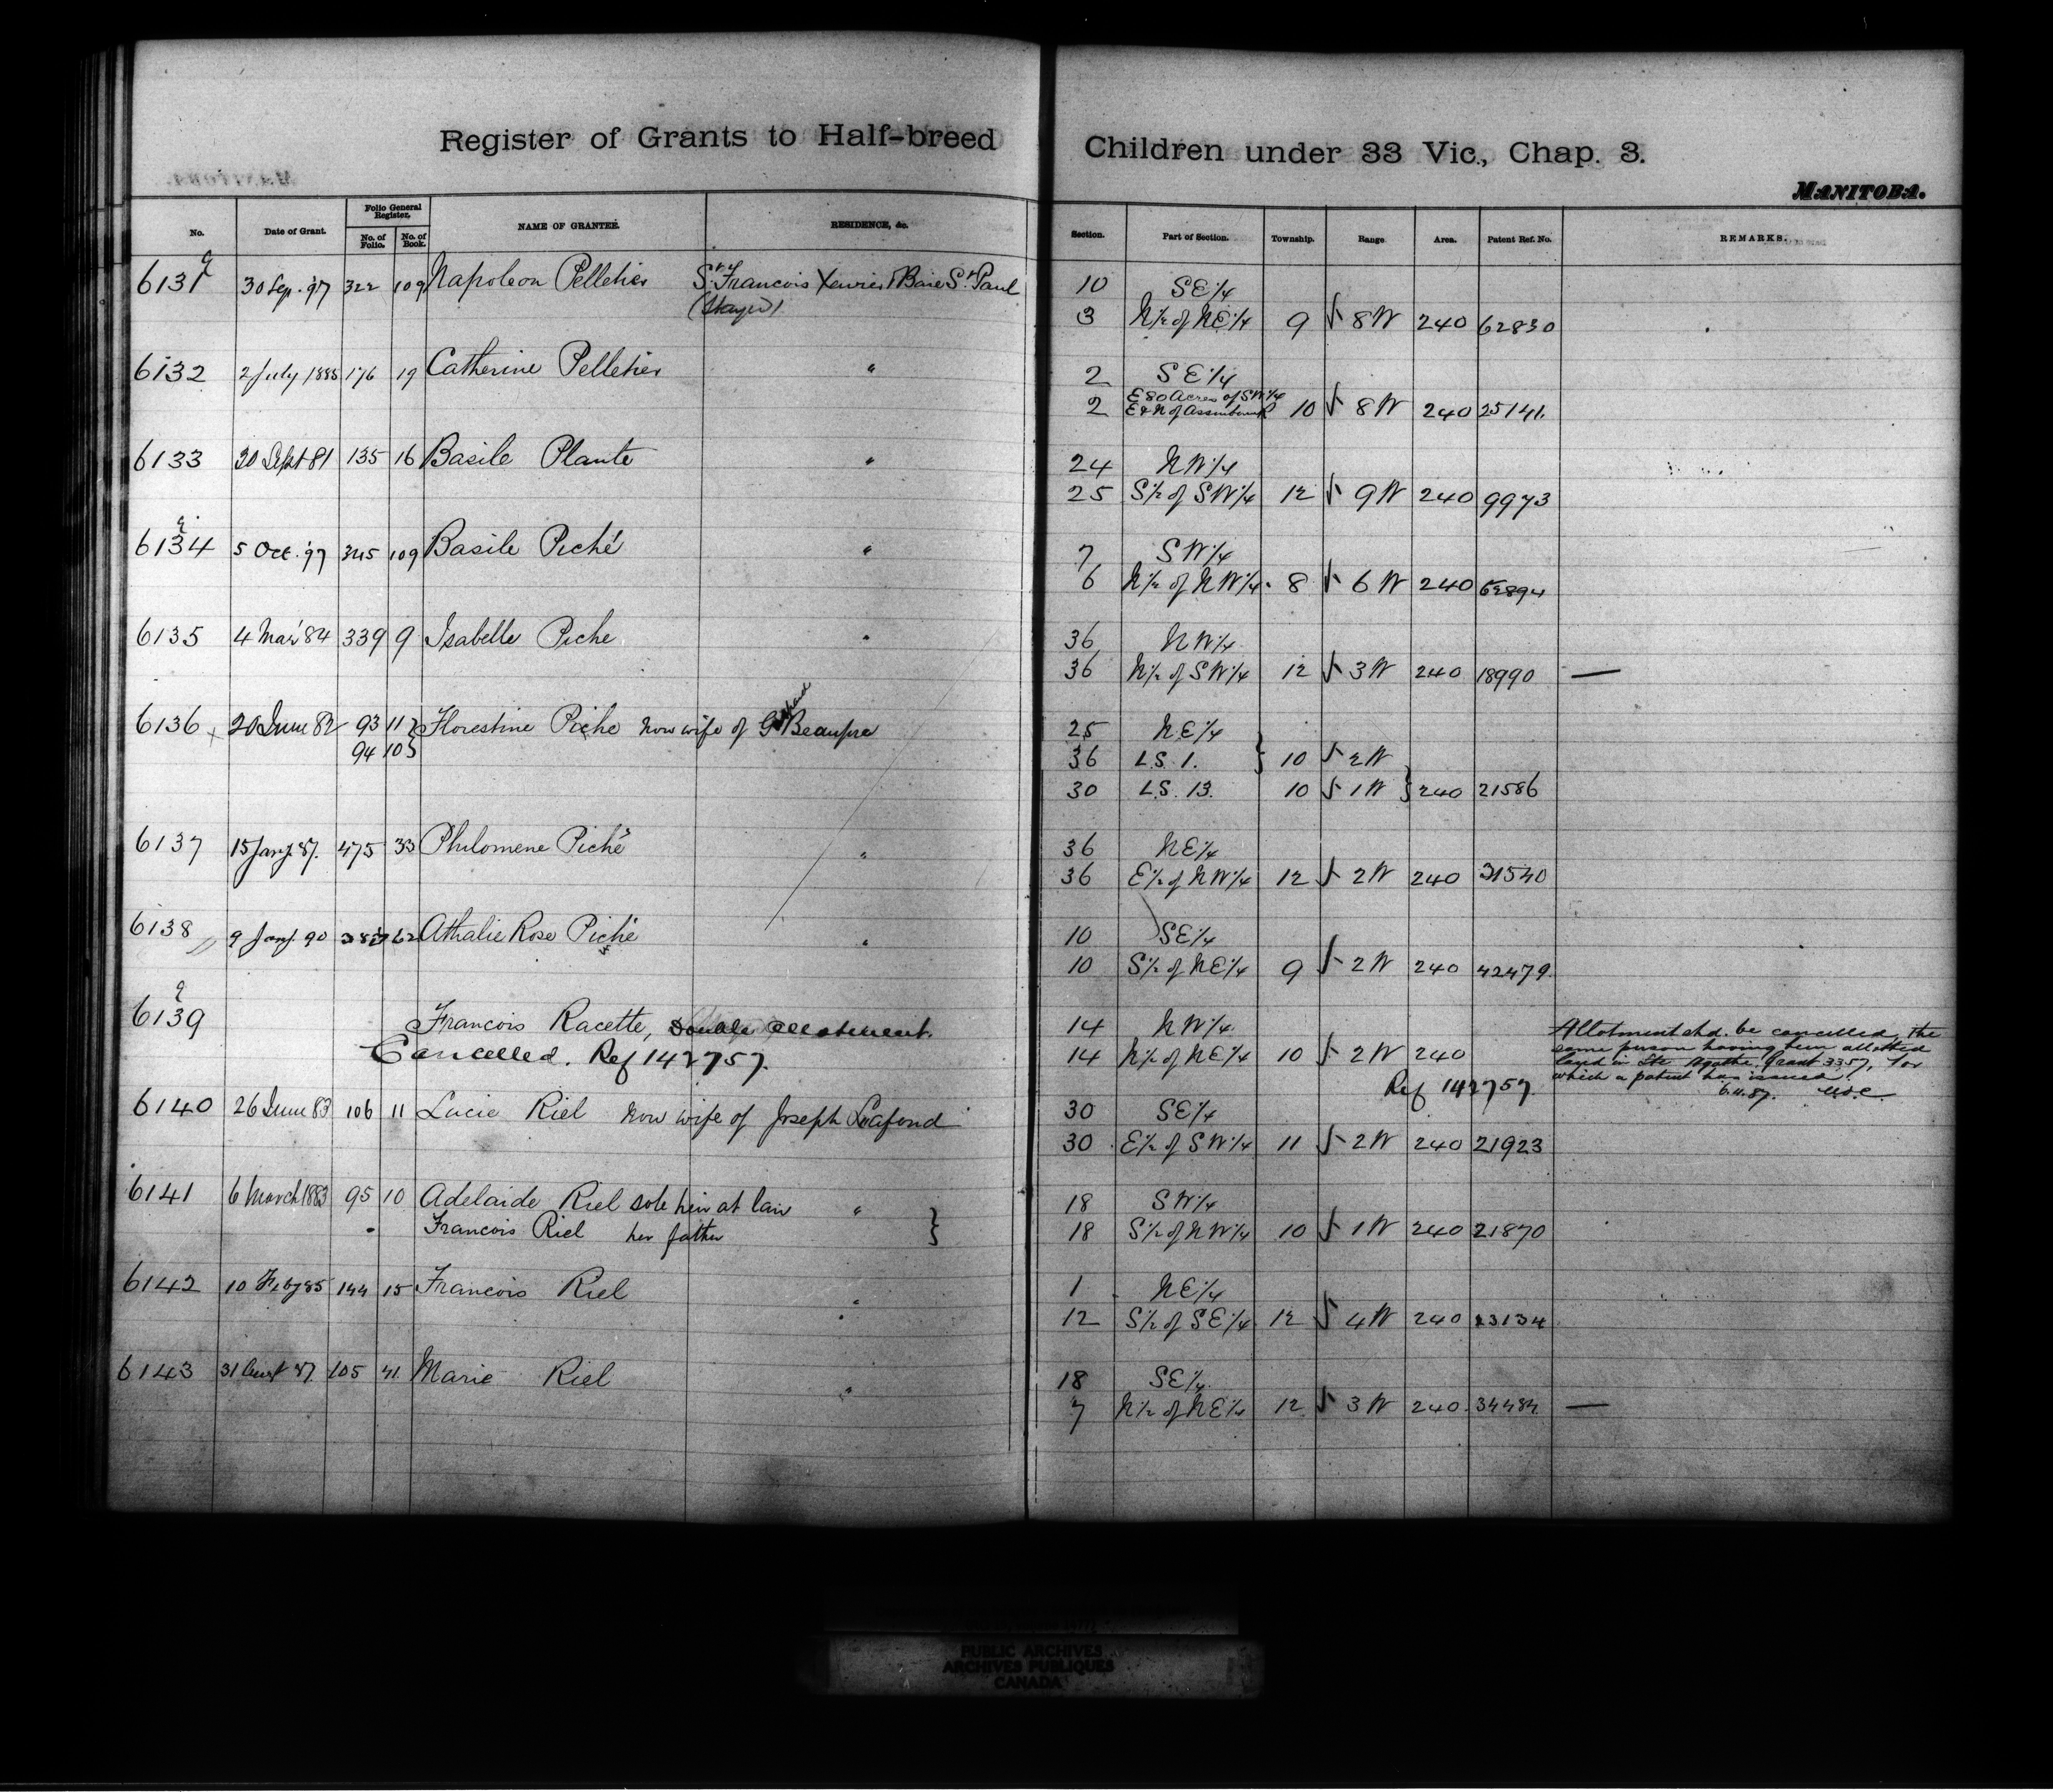 Register of Grants to Half-breed Children under 33 Vic., Chap. 3.
MANITOBA.
No. Date of Grant. Folio General Register. No. of Folio. No. of Book. NAME OF GRANTEE. RESIDENCE, &c. Section. Part of Section. Township. Range. Area. Patent Ref. No. REMARKS.
6131 30 Sep. '97 322 109 Napoleon Pelletier St. Francois Xavier & Baie St. Paul 10 SE 1/4
3 N 1/2 of NE 1/4 9 8 W 240 62830
6132 2 July 1885 176 19 Catherine Pelletier " 2 SE 1/4
E 80 Acres of SW 1/4
2 E & N of Assiniboine R 10 8 W 240 25141.
6133 30 Sept 81 135 16 Basile Plante " 24 NW 1/4
25 S 1/2 of SW 1/4 12 9 W 240 9973
6134 5 Oct. '97 345 109 Basile Piché " 7 SW 1/4
6 N 1/2 of NW 1/4 8 6 W 240 62894
6135 4 Mar '84 339 9 Isabelle Piche " 36 NW 1/4
36 N 1/2 of SW 1/4 12 3 W 240 18990 —
6136 20 June 82 93 11 Florestine Piche now wife of Beaupre 25 NE 1/4
94 10 36 L.S. 1. 10 2 W
30 L.S. 13. 10 1 W 240 21586
6137 15 Jany. 87. 475 33 Philomene Piché " 36 NE 1/4
36 E 1/2 of NW 1/4 12 2 W 240 31540
6138 9 Jany. 90 62 Athalie Rose Piché " 10 SE 1/4
10 S 1/2 of NE 1/4 9 2 W 240 42479.
6139 Francois Racette, Double allotment. 14 NW 1/4
Cancelled. Ref 142757. 14 N 1/2 of NE 1/4 10 2 W 240
Ref 142757.
Allotment shd. be cancelled, the
same person having been allotted
land in Ste Agathe. Grant 3357, for
which a patent has issued.
6140 26 June 83 106 11 Lucie Riel now wife of Joseph Lafond 30 SE 1/4
30 E 1/2 of SW 1/4 11 2 W 240 21923
6141 6 March 1883 95 10 Adelaide Riel sole heir at law " 18 SW 1/4
Francois Riel her father 18 S 1/2 of NW 1/4 10 1 W 240 21870
6142 10 Feby 85 144 15 Francois Riel " 1 NE 1/4
12 S 1/2 of SE 1/4 12 4 W 240 23134
6143 31 Augt 87. 105 41. Marie Riel " 18 SE 1/4
7 N 1/2 of NE 1/4 12 3 W 240 34484 —
PUBLIC ARCHIVES
ARCHIVES PUBLIQUES
CANADA